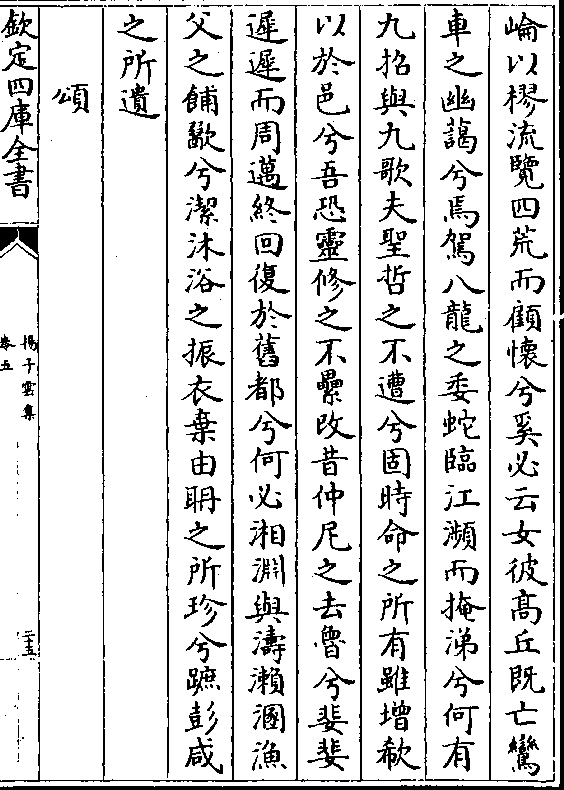 崘以樛流覽四荒而顧懷兮奚必云女彼髙丘既亡鸞
車之幽藹兮焉駕八龍之委蛇臨江瀕而掩涕兮何有
九招與九歌夫聖哲之不遭兮固時命之所有雖增欷
以於邑兮吾恐靈修之不纍改昔仲尼之去魯兮斐斐
遲遲而周邁終回復於舊都兮何必湘淵與濤瀨溷漁
父之餔歠兮潔沐浴之振衣棄由聃之所珍兮蹠彭咸
之所遺
頌
欽定四庫全書
揚子雲集
卷五
二十五